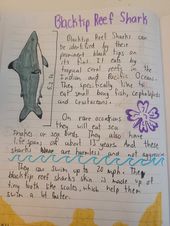 Blacktip Reef Shark
Blacktip Reef Sharks can
be identified by their
prominent black tips on
its fins. It eats by
tropical coral reefs in the
Indian and Pacific Oceans.
They specifically like to
eat small bony fish, cephalopods
and crustaceans.
On rare occasions
they will eat sea
snakes or sea birds. They also have
life spans of about 13 years. And these
sharks are harmless and not aggressive
They can swim up to 20 mph. The
blacktip reef sharks skin is made up of
tiny tooth like scales, which help them
swim a lot faster.